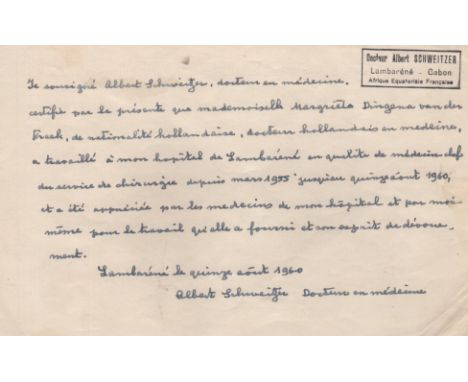 Docteur Albert SCHWEITZER
Lambaréné - Gabon
Afrique Equatoriale Française
Je soussigné Albert Schweitzer, docteur en médecine,
certifie par la présente que mademoiselle Margrieta Dingena van der
Kreek, de nationalité hollandaise, docteur hollandais en médecine,
a travaillé à mon hôpital de Lambaréné en qualité de médecin chef
du service de chirurgie depuis mars 1955 jusqu'au quinze août 1960,
et a été appréciée par les medecins de mon hôpital et par moi-
même pour le travail qu'elle a fourni et son esprit de dévoue-
ment.
Lambaréné le quinze août 1960
Albert Schweitzer Docteur en médecine